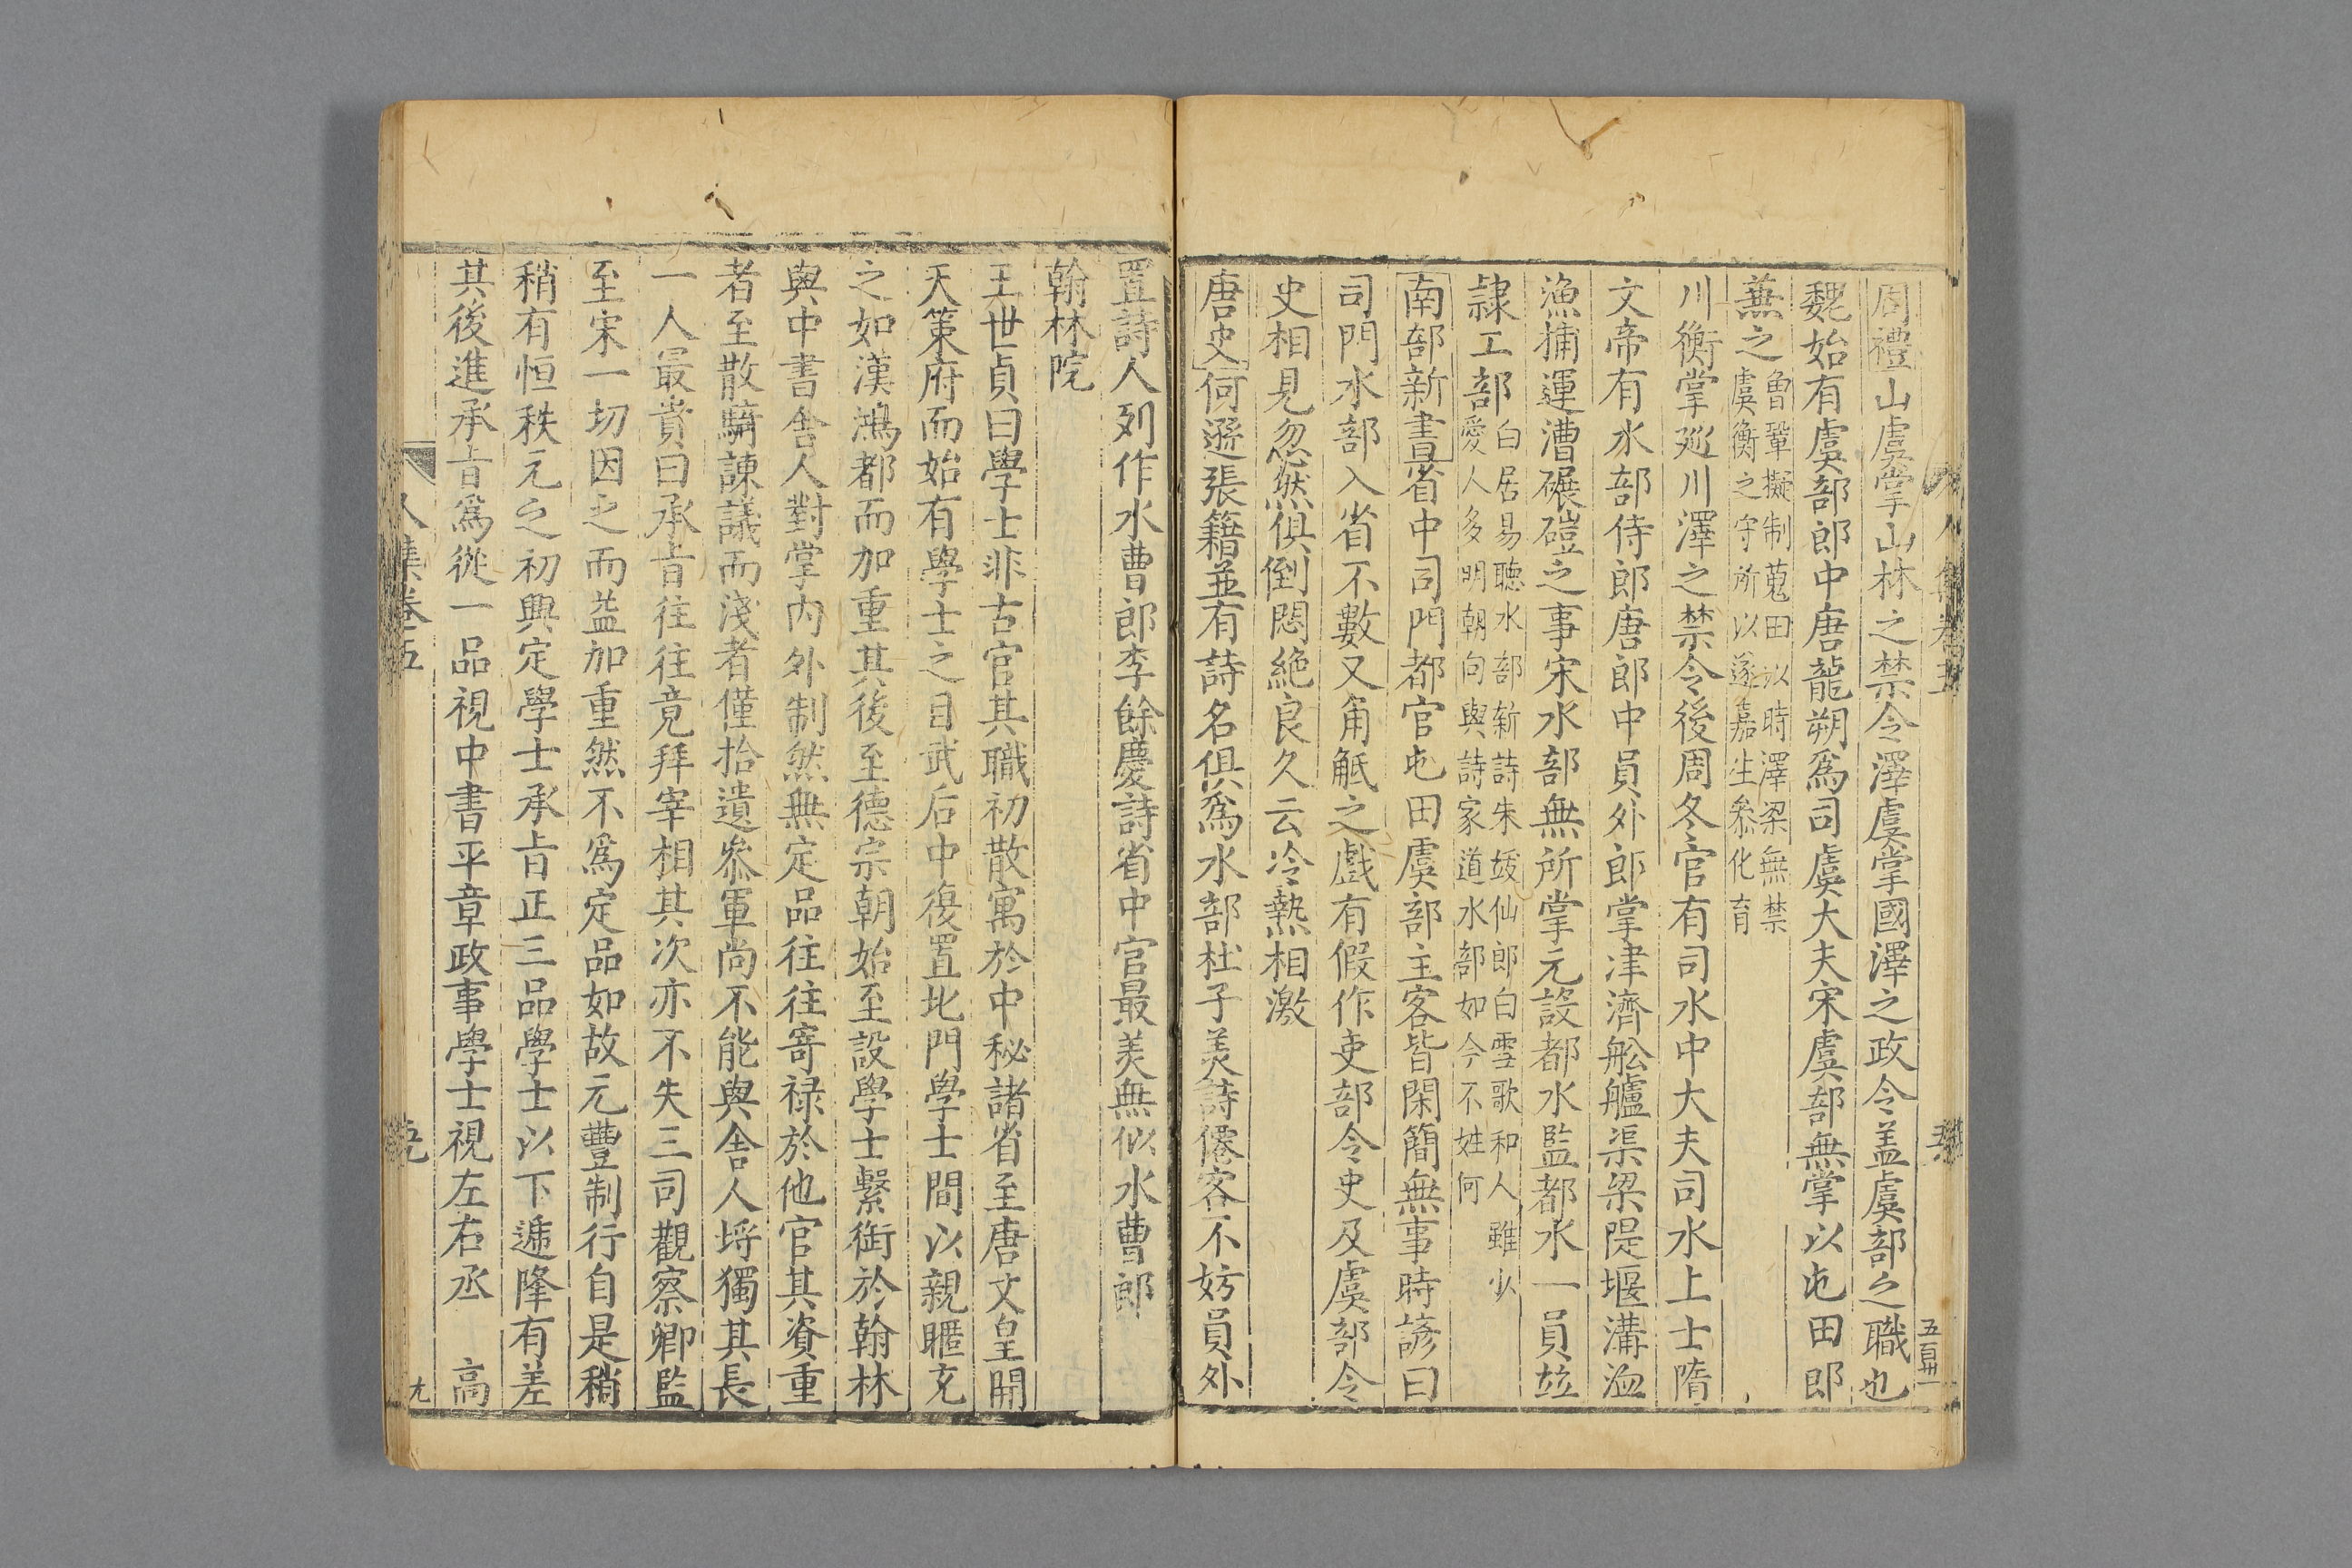 周禮山虞掌山林之禁令澤虞掌國澤之政令盖虞部之職也
魏始有虞部郎中唐龍朔爲司虞大夫宋虞部無掌以屯田郎
兼之魯鞏擬制蒐田以時澤梁無禁
虞衡之守所以遂嘉生叅化育
川衡掌廵川澤之禁令後周冬官有司水中大夫司水上士隋
文帝有水部侍郎唐郎中員外郎掌津濟舩艫渠梁隄堰溝洫
漁捕運漕碾磑之事宋水部無所掌元設都水監都水一員竝
隷工部白居易聴水部新詩朱紱仙郎白雪歌和人雖少
愛人多明朝向與詩家道水部如今不姓何
南部新書省中司門都官屯田虞部主客皆閑簡無事時諺曰
司門水部入省不數又角觝之戲有假作吏部令史及虞部令
史相見忽然俱倒悶絶良久云冷熱相激
唐史何遜張籍並有詩名俱爲水部杜子美詩僊客不妨員外
置詩人列作水曹郎李餘慶詩省中官最美無似水曹郎
翰林院
王世貞曰學士非古官其職初散寓於中秘諸省至唐文皇開
天策府而始有學士之目武后中復置北門學士間以親暱充
之如漢鴻都而加重其後至德宗朝始至設學士繫銜於翰林
與中書舎人對掌内外制然無定品往往寄禄於他官其資重
者至散騎諫議而淺者僅拾遺叅軍尚不能與舎人埒獨其長
一人最貴曰承旨往往竟拜宰相其次亦不失三司觀察卿監
至宋一切因之而益加重然不爲定品如故元豐制行自是稍
稍有恒秩元之初興定學士承旨正三品學士以下遞降有差
其後進承旨爲從一品視中書平章政事學士視左右丞 高
人集卷五
九
五百廿一